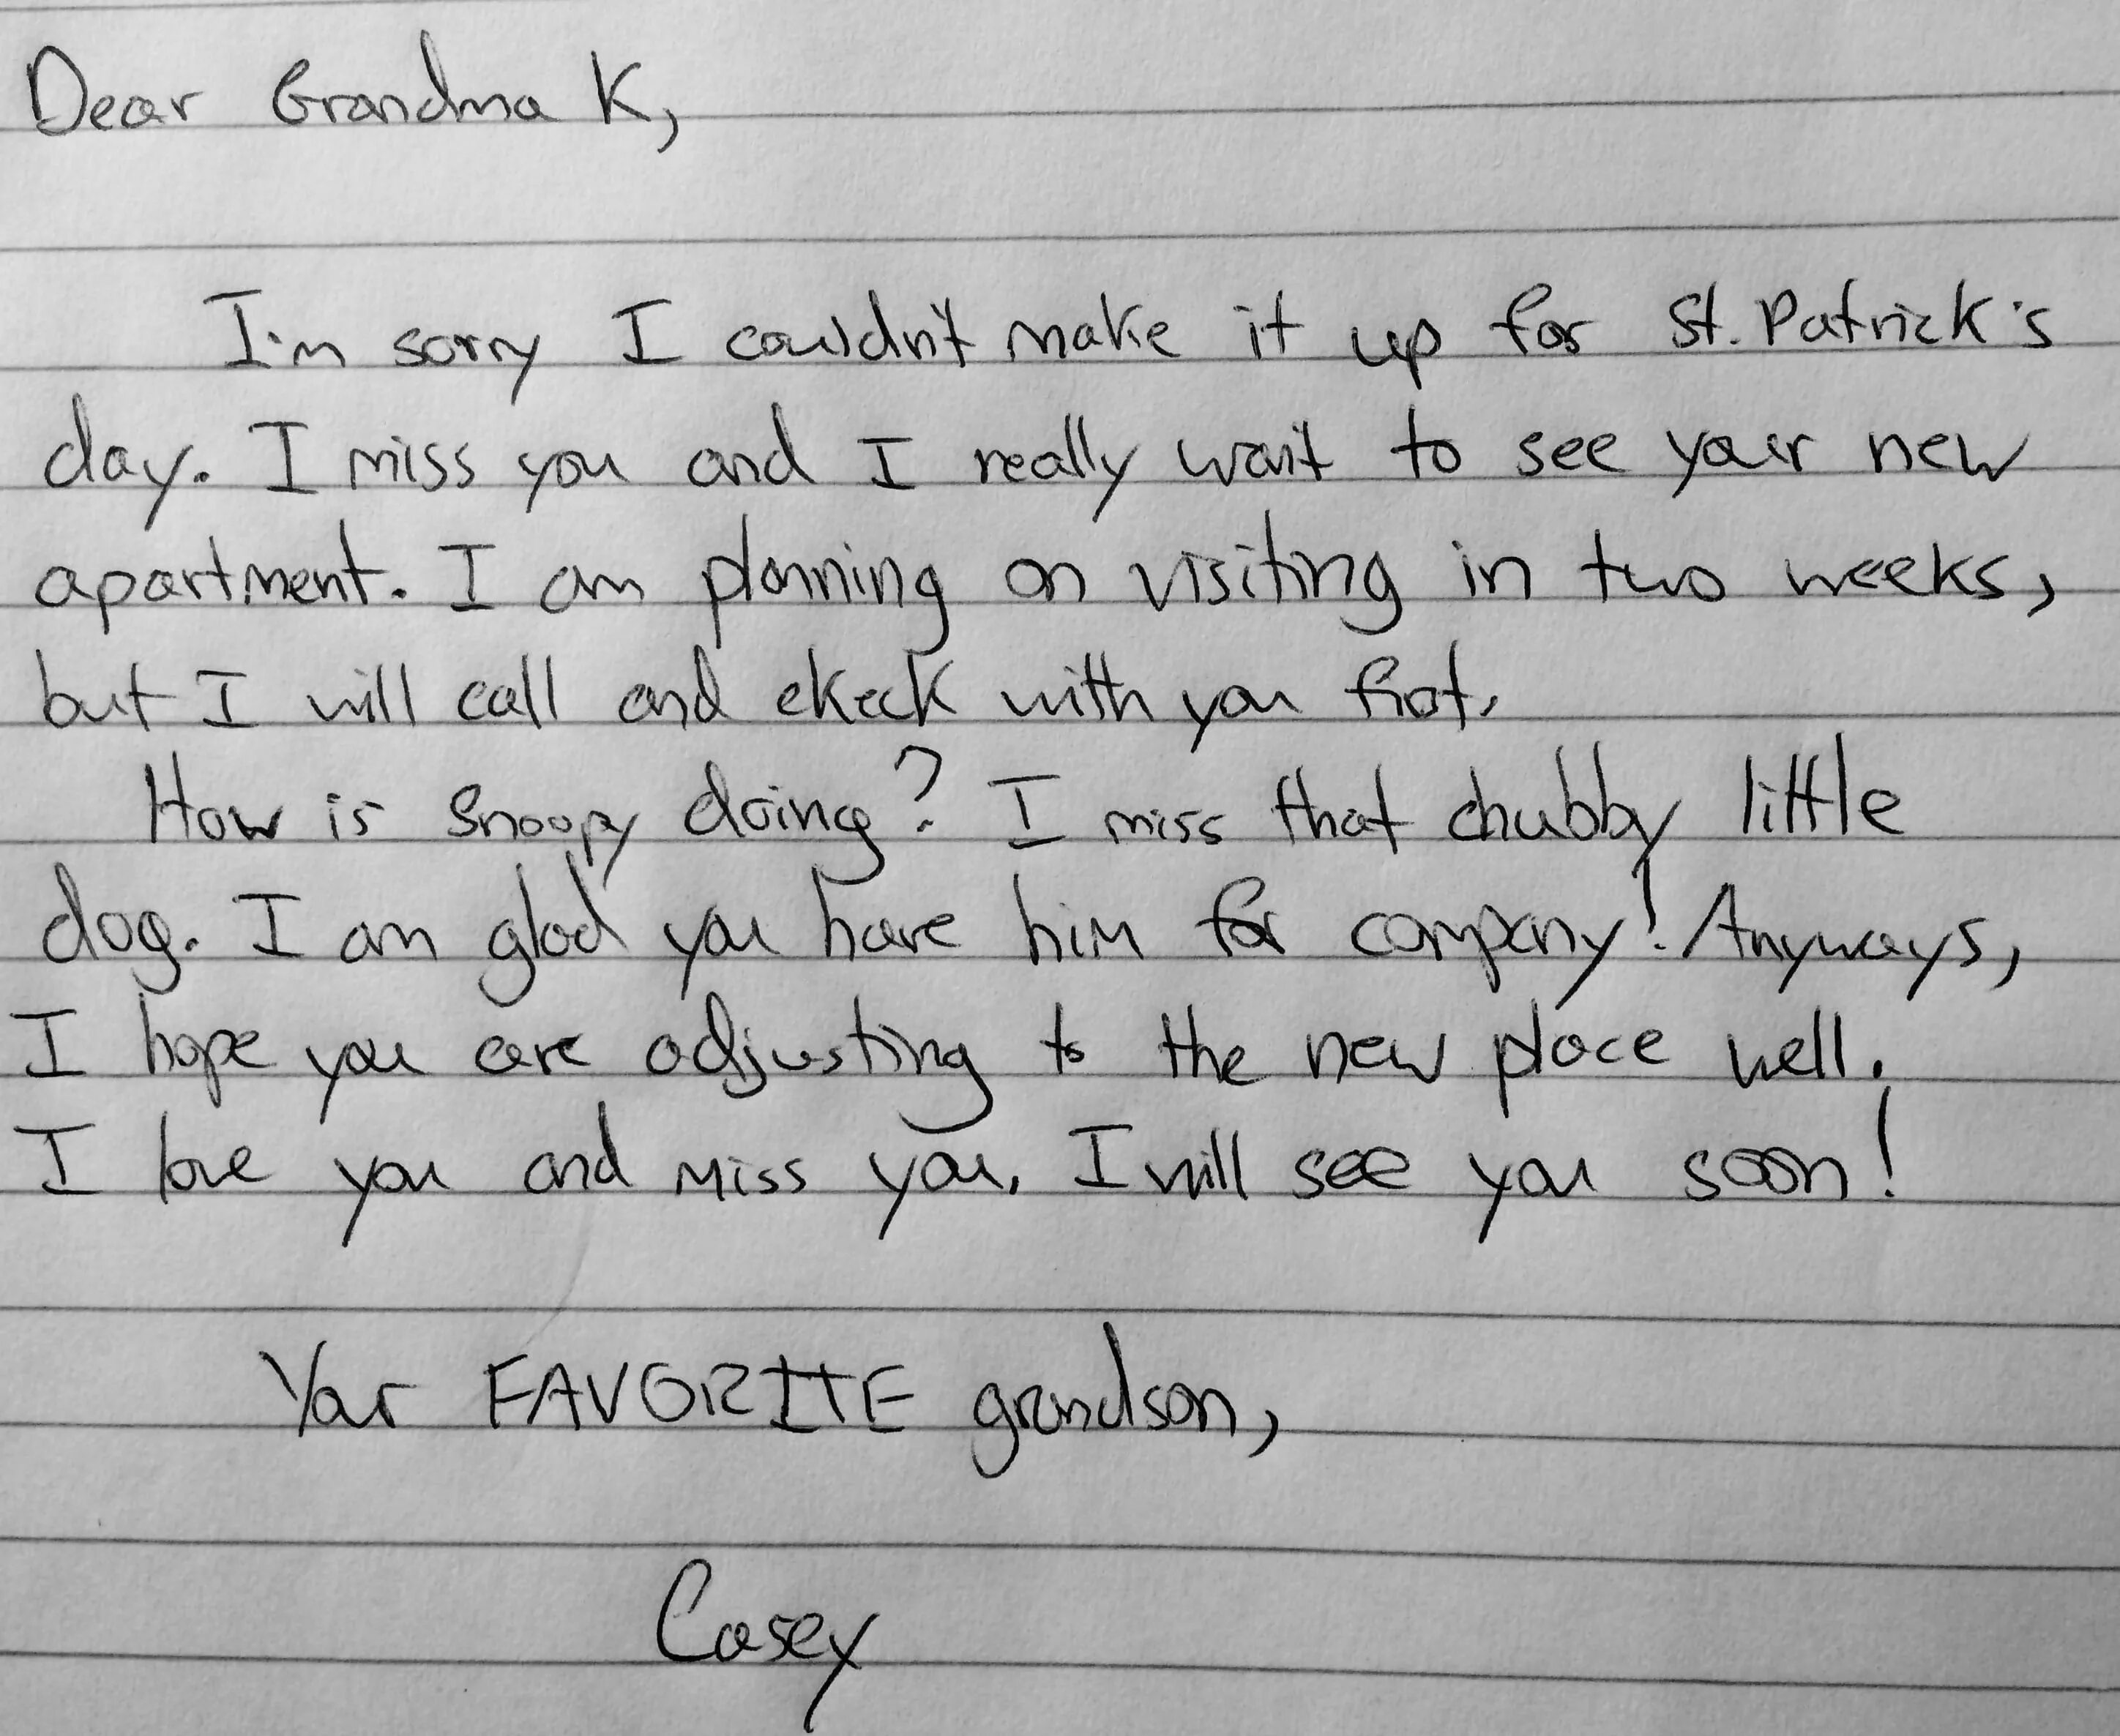 Dear Grandma K,
I'm sorry I couldn't make it up for St. Patrick's
day. I miss you and I really want to see your new
apartment. I am planning on visiting in two weeks,
but I will call and check with you first.
How is Snoopy doing? I miss that chubby little
dog. I am glad you have him for company! Anyways,
I hope you are adjusting to the new place well.
I love you and miss you. I will see you soon!
Your FAVORITE grandson,
Casey